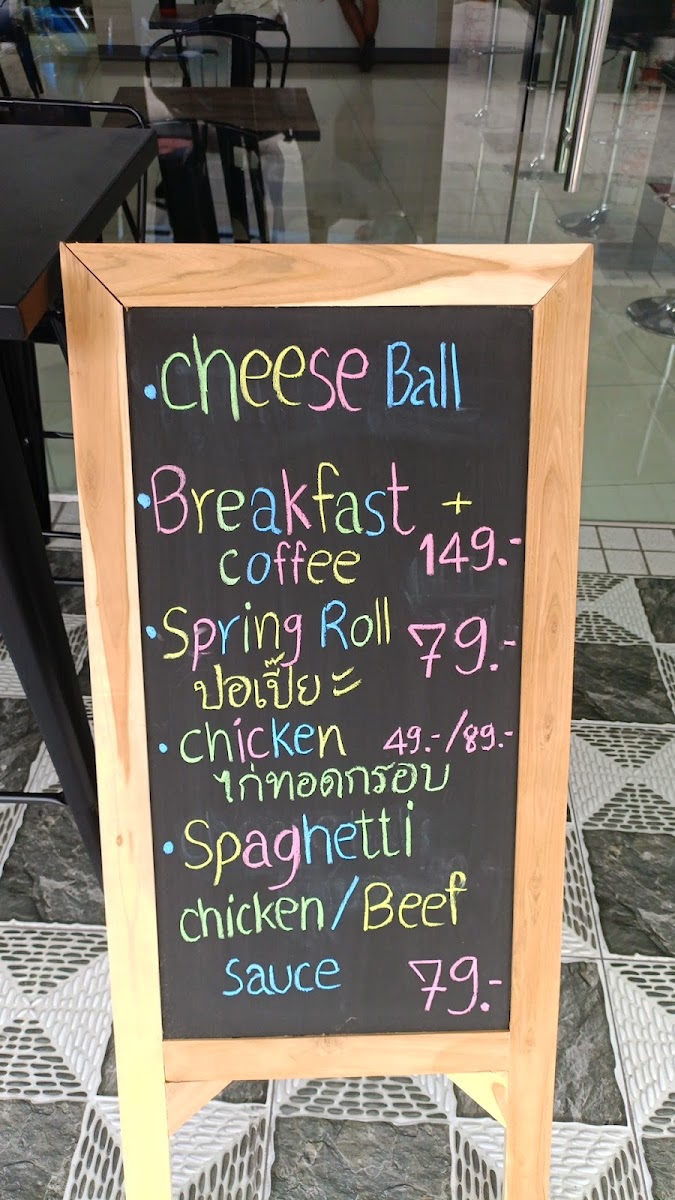 • cheese Ball
• Breakfast +
coffee 149.-
• Spring Roll 79.-
ปอเปี๊ยะ
• chicken 49.-/89.-
ไก่ทอดกรอบ
• Spaghetti
chicken/Beef
sauce 79.-